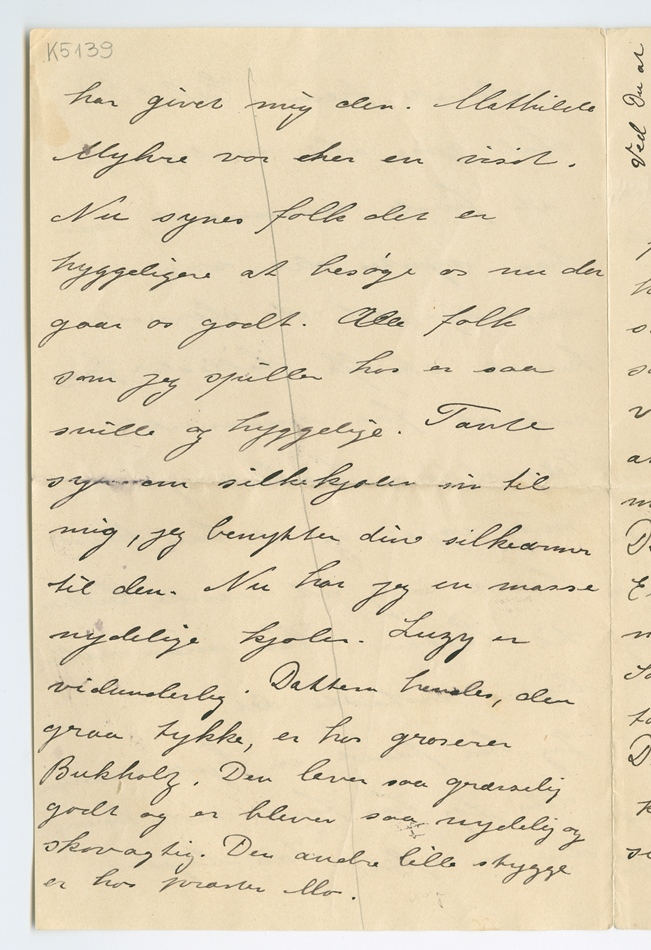 K5139
har givet mig den. Mathilde
Myhre var her en visit.
Nu synes folk det er
hyggeligere at besøge os nu der
gaar os godt. Alle folk
som jeg spiller hos er saa
snille og hyggelige. Tante
syr om silkekjolen min til
mig, jeg benytter dine silkeærmer
til den. Nu har jeg en masse
nydelige kjoler. Luzy er
vidunderlig. Dattern hendes, den
graa tykke, er hos groserer
Bukholz. Den lever saa græsselig
godt og er blever saa nydelig og
skovagtig. Den andre lille stygge
er hos Mo.
Ved Du at